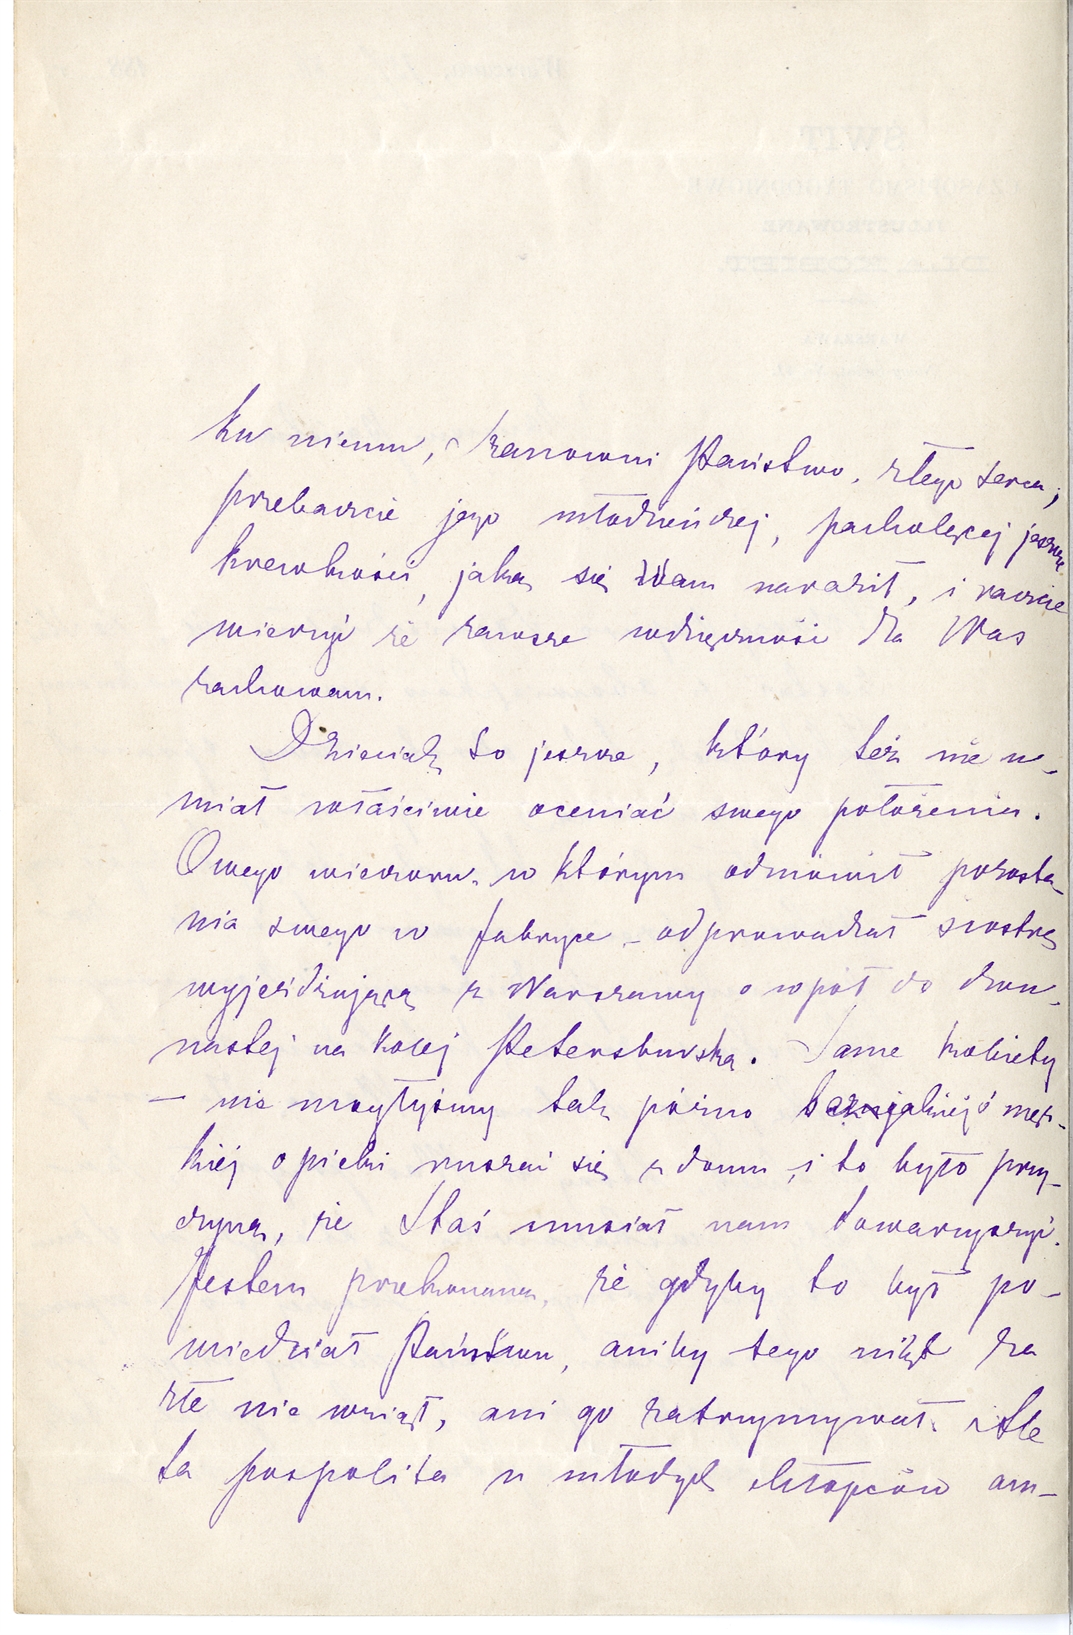 ku niemu, Szanowni Państwo, złego serca;
przebaczcie jego młodzieńczej, pacholęcej jeszcze
krewkości, jaką się Wam naraził, i raczcie
wierzyć że zawsze wdzięczność dla Was
zachowam.
Dzieciak to jeszcze, który też nie u-
miał właściwie oceniać swego położenia.
Owego wieczoru, w którym odmówił pozosta-
nia swego w fabryce - odprowadzał siostrę
wyjeżdżającą z Warszawy o wpół do dwu-
nastej na kolej Petersburską. Same kobiety
- nie mogłyśmy tak późno bez jakiejś męz-
kiéj opieki ruszać się z domu, i to było przy-
czyną, że Staś musiał nam towarzyszyć.
Jestem przekonana, że gdyby to był po-
wiedział Państwu, aniby tego nikt za
złe nie wziął, ani go zatrzymywał. Ale
ta pospolita u młodych chłopców am-